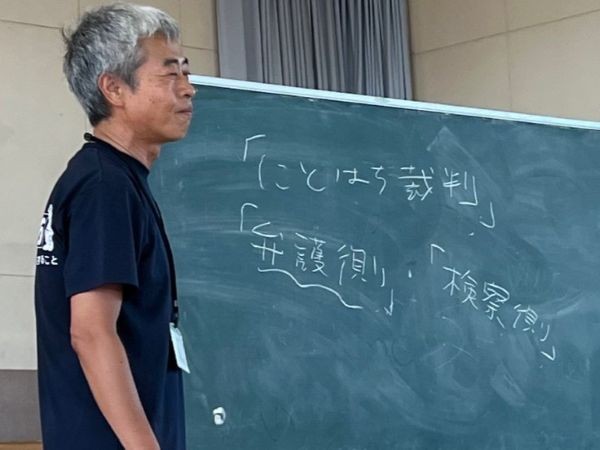 「にとはち裁判」
「弁護側」・「検察側」
こと